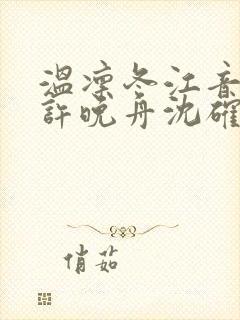 温凛冬江音
許晚舟沈確
俏茹